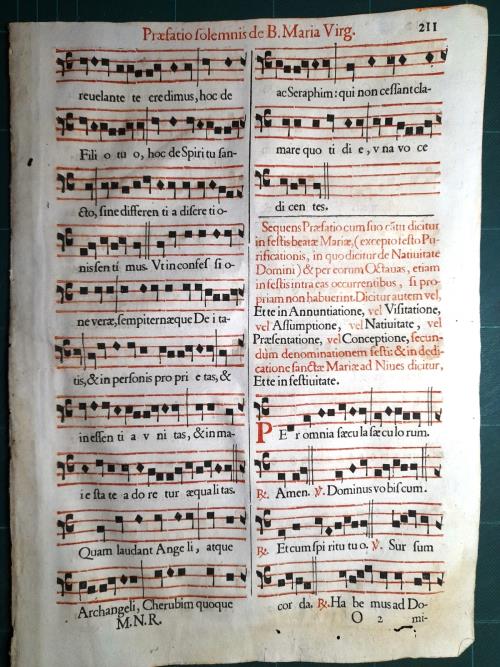 Præfatio solemnis de B. Maria Virg.
211
reuelante te credimus, hoc de
Fili o tu o, hoc de Spiri tu san-
cto, sine differen ti a discre ti o-
nis sen ti mus. Vt in confes si o-
ne veræ, sempiternæque De i ta-
tis, & in personis pro pri e tas, &
in essen ti a v ni tas, & in ma-
i e sta te a do re tur æquali tas.
Quam laudant Ange li, atque
Archangeli, Cherubim quoque
M.N.R.
ac Seraphim: qui non cessant cla-
mare quo ti di e, v na vo ce
di cen tes.
Sequens Præfatio cum suo cãtu dicitur
in festis beatæ Mariæ, (excepto festo Pu-
rificationis, in quo dicitur de Natiuitate
Domini) & per eorum Octauas, etiam
in festis intra eas occurrentibus, si pro-
priam non habuerint. Dicitur autem vel,
Et te in Annuntiatione, vel Visitatione,
vel Assumptione, vel Natiuitate, vel
Præsentatione, vel Conceptione, secun-
dùm denominationem festi: & in dedi-
catione sanctæ Mariæ ad Niues dicitur,
Et te in festiuitate.
P E r omnia sæcu la sæ cu lo rum.
℟. Amen. ℣. Dominus vo bis cum.
℟. Et cum spi ritu tu o. ℣. Sur sum
cor da. ℟. Ha be mus ad Do-
O 2 mi-